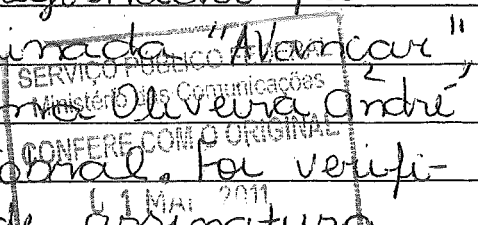 inada "Avançar"
SERVIÇO PÚBLICO FEDERAL
Ministério das Comunicações
Oliveira André,
CONFERE COM O ORIGINAL
Foi verifi-
MAI 2011
de assinatura